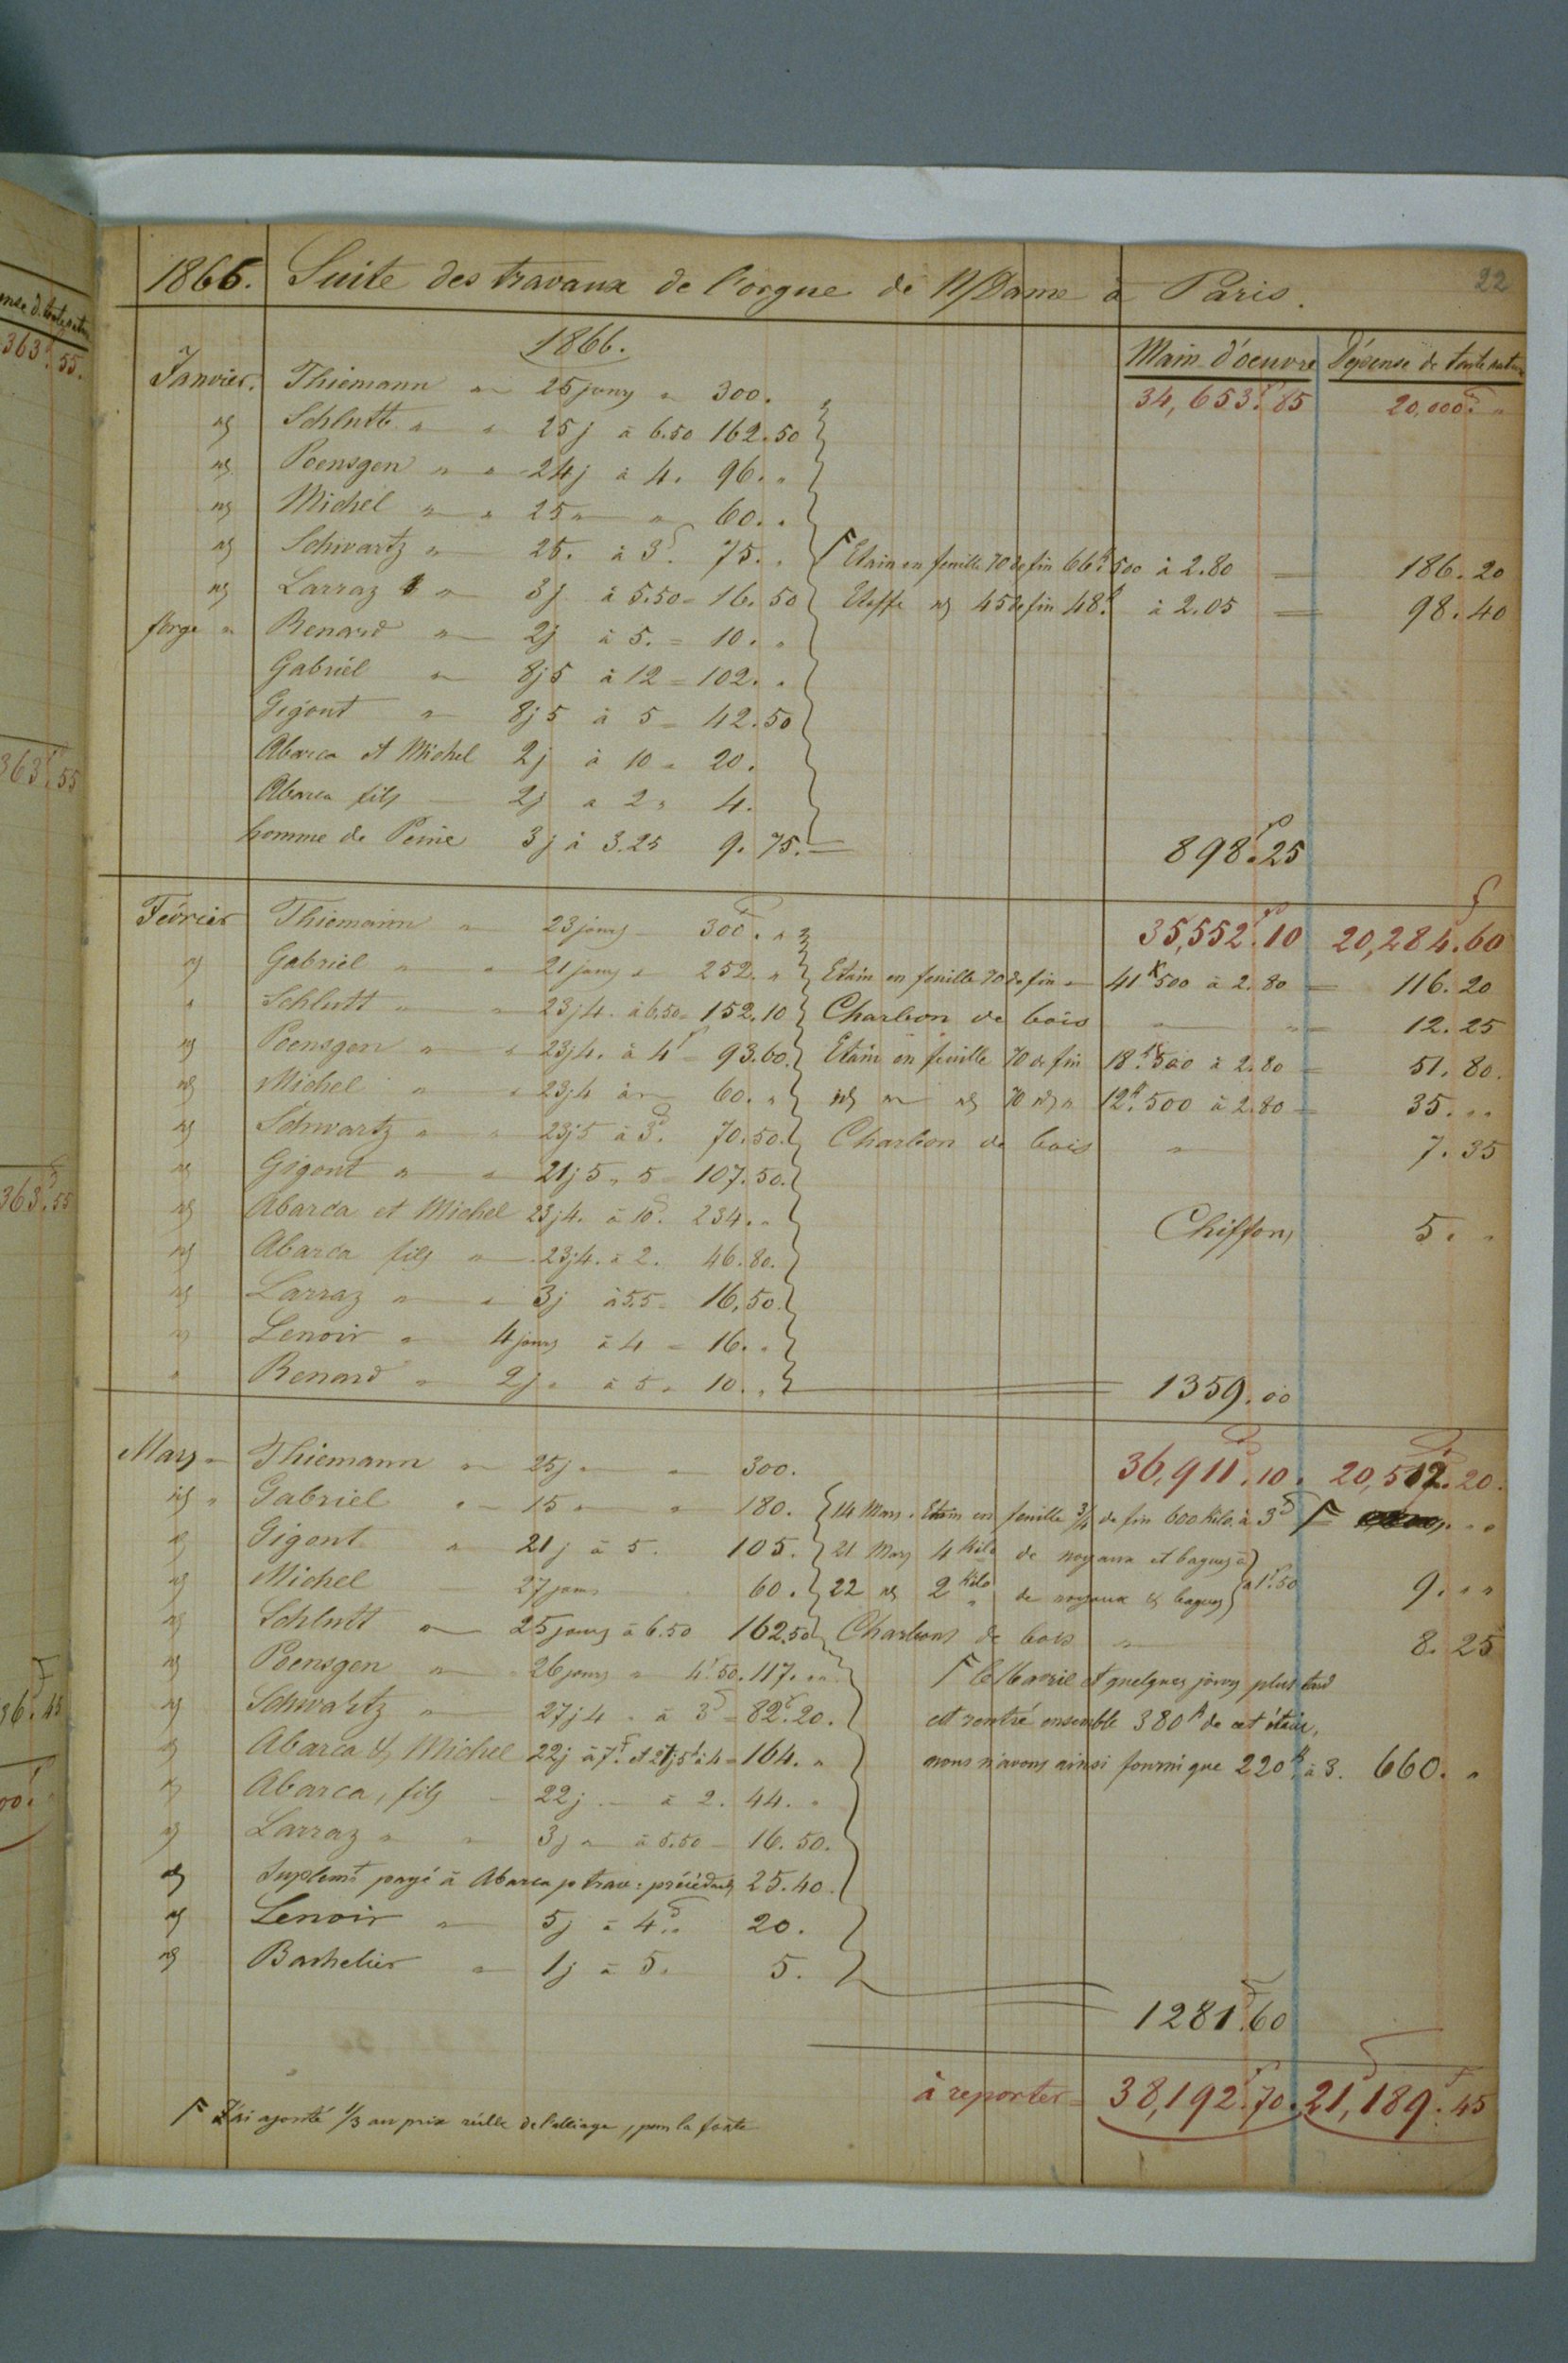 1866. Suite des travaux de l'orgue de N/Dame à Paris. 22
1866. Main d'oeuvre Dépense de toute nature
Janvier. Thiemann " 25 jours " 300. 34,653f.85 20,000f. "
id Schlutt " " 25 j à 6.50 162.50
id Poensgen " " 24 j à 4. 96. "
id Michel " " 25 " " 60. "
id Schwartz " 25. à 3f. 75. " Γ Etain en feuille 70 de fin 66k.500 à 2.80 = 186.20
id Larraz " 3 j à 5.50 = 16.50 Etoffe id 45 de fin 48k. à 2.05 = 98.40
forge " Renard " 2j à 5. = 10. "
Gabriel " 8j5 à 12 = 102. "
Gigont " 8j5 à 5 = 42.50
Abarca et Michel 2j à 10 = 20.
Abarca fils — 2j à 2 " 4.
homme de Peine 3 j à 3.25 9.75. = 898f.25
Février Thiemann " 23 jours — 300f. " 35,552f.10 20,284f.60
id Gabriel " " 21 jours " 252. " Etain en feuille 70 de fin " 41k500 à 2.80 = 116.20
" Schlutt " " 23j4. à 6.50 = 152.10 Charbon de bois " " 12.25
id Poensgen " " 23j4. à 4f = 93.60. Etain en feuille 70 de fin 18k.500 à 2.80 = 51.80.
id Michel " " 23j4 à " 60. " id " id 70 id " 12k.500 à 2.80 = 35. " "
id Schwartz " " 23j5 à 3f. 70.50. Charbon de bois " 7.35
id Gigont " " 21j5 " 5 = 107.50.
id Abarca et Michel 23j4. à 10f. 234. " Chiffons 5. "
id Abarca fils " 23j4. à 2. 46.80.
id Larraz " " 3j à 5.5 = 16.50.
id Lenoir " 4 jours à 4 = 16. "
" Renard " 2j " à 5 " 10. " 1359.00
Mars " Thiemann " 25j " " 300. 36,911f.10. 20,512f.20.
id " Gabriel " 15 " " 180. 14 Mars. Etain en feuille 3/4 de fin 600 Kilo. à 3f Γ " "
id Gigont " 21j à 5. 105. 21 Mars 4 Kilo de noyaux et bagues à
id Michel — 27 jours 60. 22 id 2 Kilo " de noyaux & bagues à 1f.50 9. " "
id Schlutt " 25 jours à 6.50 162.50 Charbons de bois " 8.25
id Poensgen " 26 jours " 4f.50. 117. " " Γ le avril et quelques jours plus tard
id Schwartz " 27j4 " à 3f = 82f.20. est rentré ensemble 380k de cet étain,
id Abarca & Michel 22j à 7f. et à 4 = 164. " nous n'avons ainsi fourni que 220k. à 3. 660. "
id Abarca, fils — 22j — à 2. 44. "
id Larraz " " 3j " à 5.50 — 16.50.
id Suplemt payé à Abarca pr trav: précédents 25.40.
id Lenoir " 5j à 4f. " 20.
id Bachelier " 1j à 5. 5.
1281f.60
à reporter = 38,192f.70. 21,189f.45
Γ J'ai ajouté 1/3 au prix réelle de l'alliage, pour la fonte
363f.55.
363f.55
363f.55